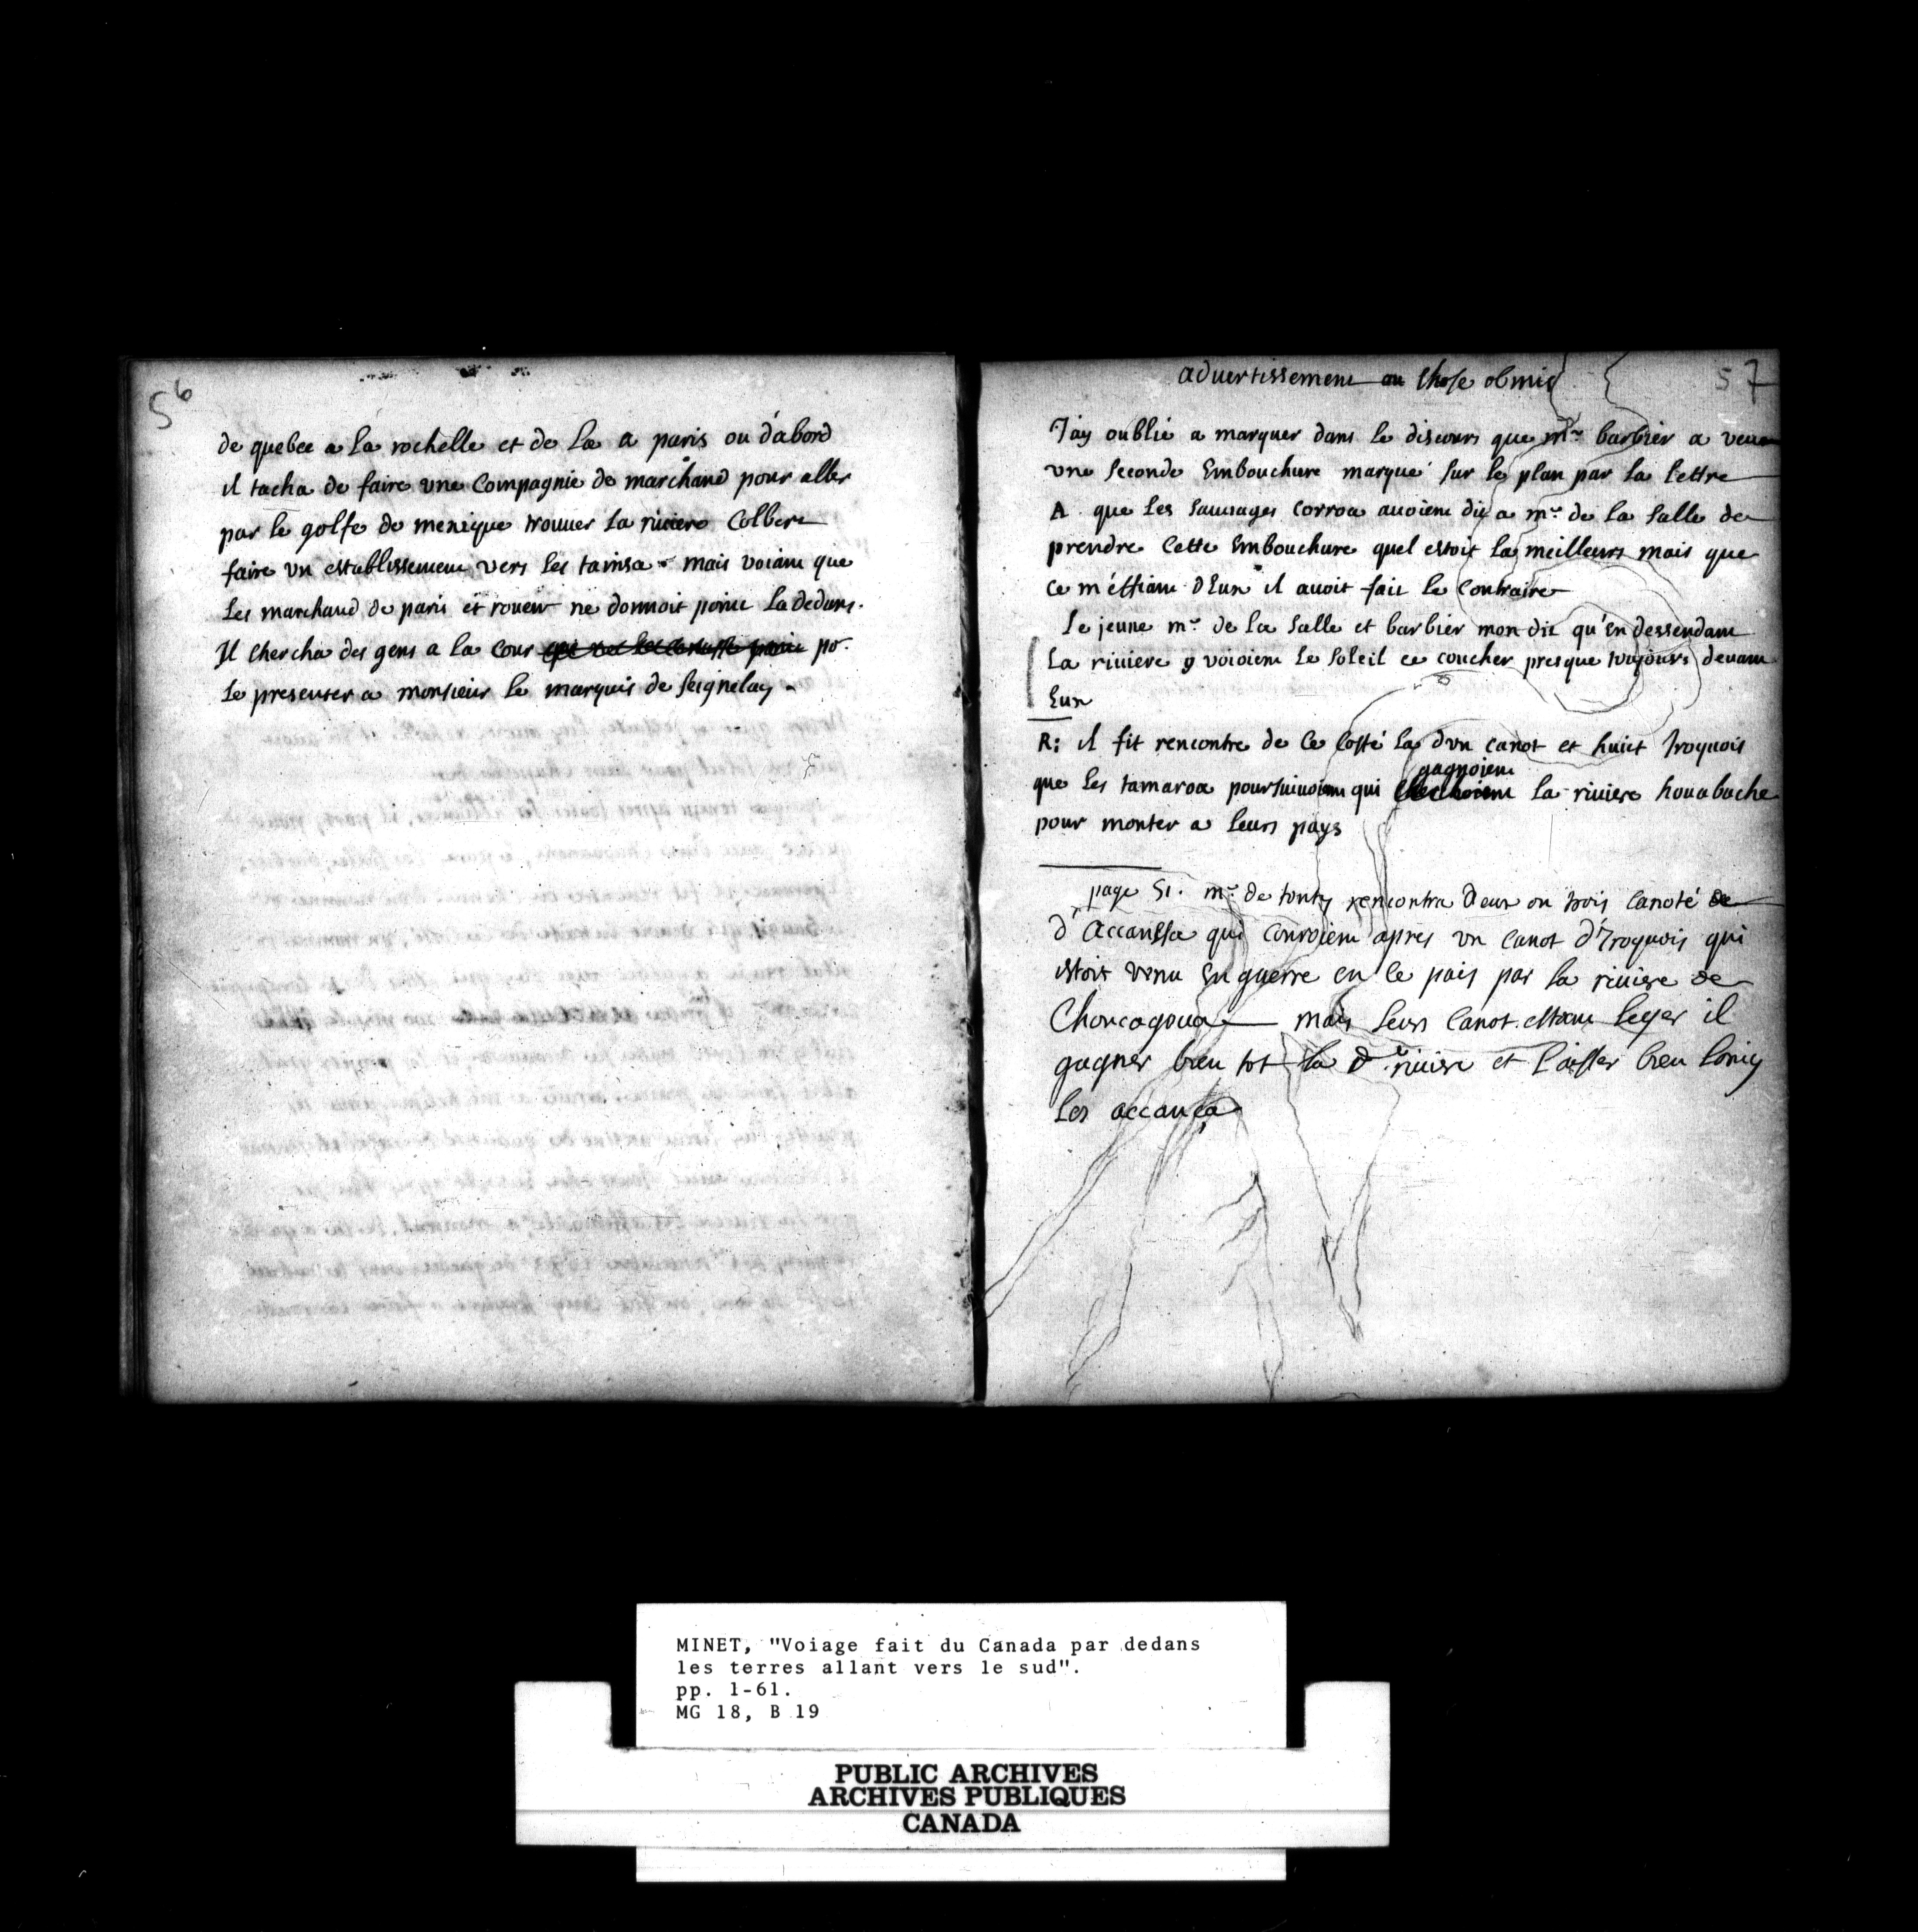 56
de quebec a La rochelle et de La a paris ou d'abord
il tacha de faire une Compagnie de marchand pour aller
par le golfe de mexique trouuer la riuiere Colbert
faire un establissement vers les tainsa mais voiant que
Les marchand de paris et rouen ne donnoit point La dedans.
Il chercha des gens a la Cour po.r
Le presenter a monsieur le marquis de Seignelay
advertissement ou chose obmis
57
J'ay oublié a marquer dans le discours que mr. barbier a veu
une Seconde Embouchure marqué sur le plan par la Lettre
A que Les Sauuages Corroa auoient dit a mr. de la Salle de
prendre Cette Embouchure quel estoit la meilleurs mais que
ce m'effiant d'Eux il auoit fait le Contraire
Le jeune mr. de La Salle et barbier mon dit qu'En dessendant
La riuiere voioient Le Soleil ce coucher presque toujours deuant
Eux
R: il fit rencontre de ce Costé la d'un canot et huict Iroquois
que Les tamaroa poursuiuoient qui gagnoient la riuiere houabache
pour monter a leurs pays
page 51. mr. de tonty rencontra deux ou trois Canoté de
d'Accanssa qui Couroient apres un Canot d'Iroquois qui
estoit venu En guerre en le pais par la riuiere de
Choucagoua mais leurs Canot estant leger il
gagner bien tot la de riuiere et laisser bien loing
Les accança
MINET, "Voiage fait du Canada par dedans
les terres allant vers le sud".
pp. 1-61.
MG 18, B 19
PUBLIC ARCHIVES
ARCHIVES PUBLIQUES
CANADA